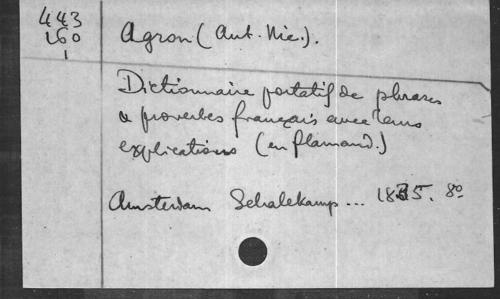 443
160
1
Agron (Ant. Nic.).
Dictionnaire portatif de phrases
& proverbes français avec leurs
explications (en flamand.)
Amsterdam Schalekamp... 1835. 8º